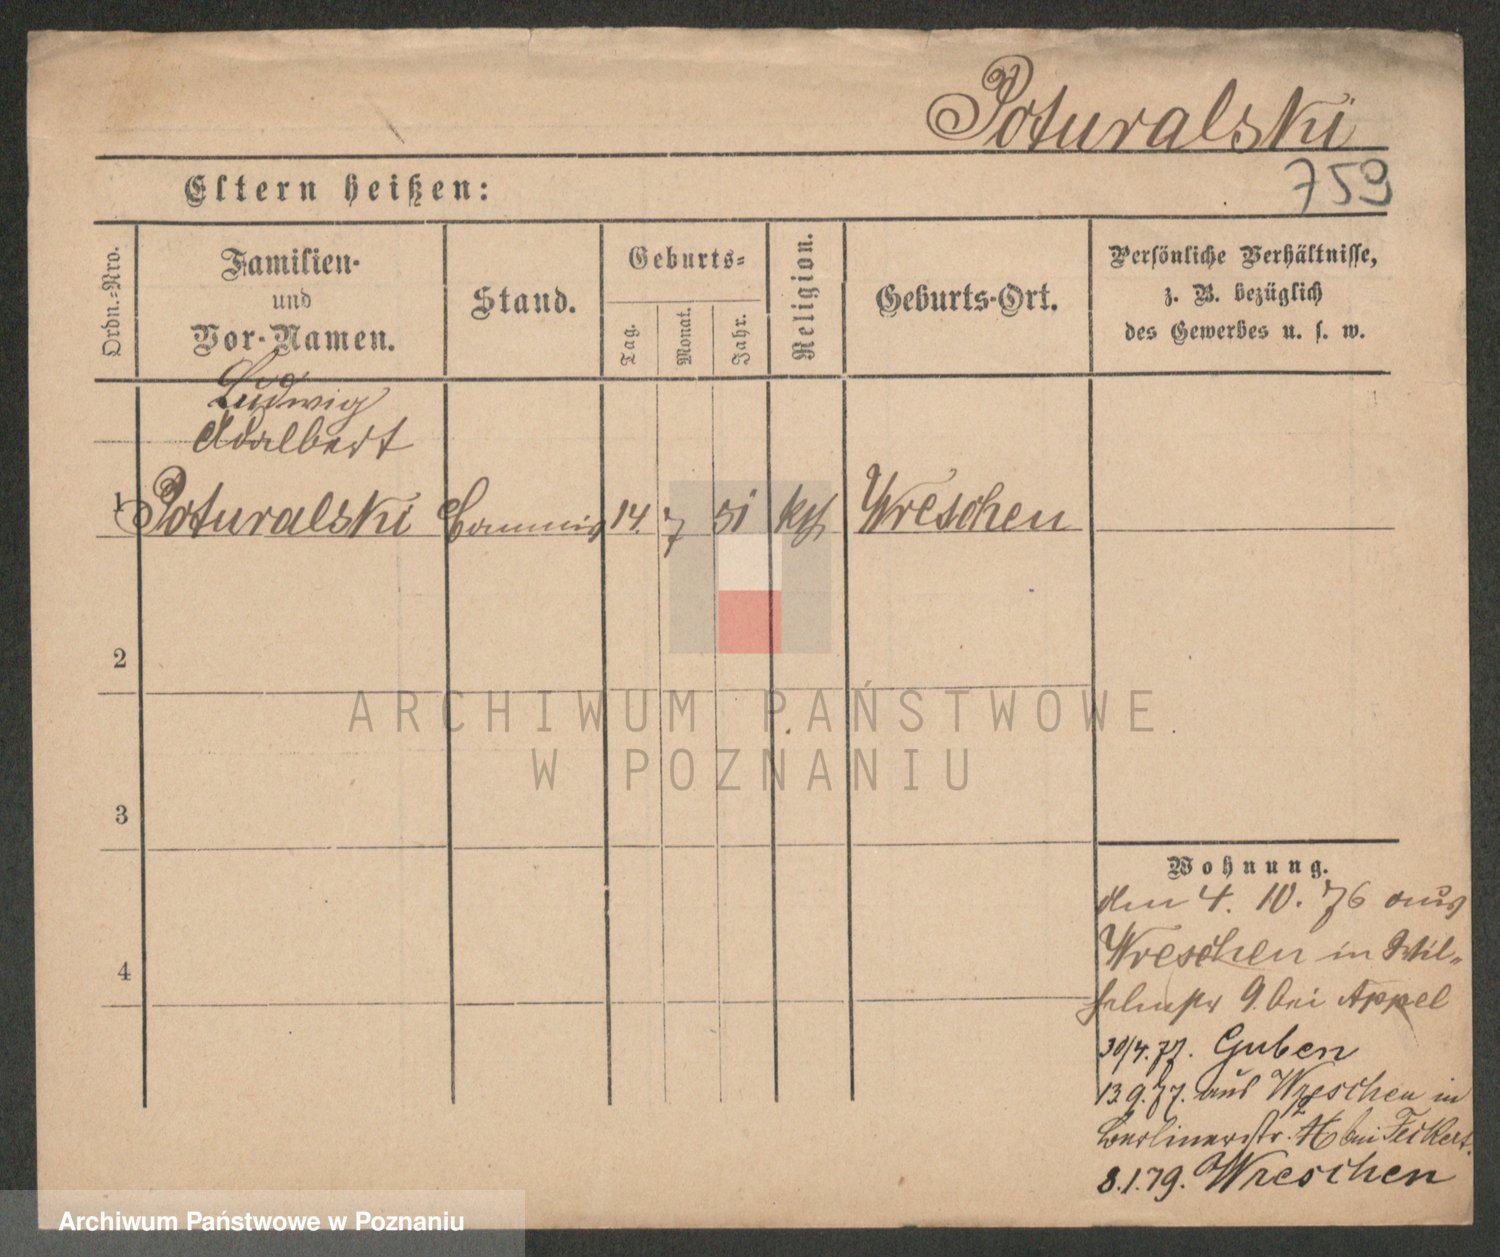 Poturalski
759
Eltern heißen:
Ordn.-Nro.
Familien-
und
Vor-Namen.
Stand.
Geburts-
Tag.
Monat.
Jahr.
Religion.
Geburts-Ort.
Persönliche Verhältnisse,
z. B. bezüglich
des Gewerbes u. s. w.
Ludwig
Adalbert
1 Poturalski Commis 14. 7 51 kth Wreschen
2
3
4
Wohnung.
den 4. 10. 76 aus
Wreschen in Wil-
helmstr 9. bei Appel
30/4. 77. Guben
13.9.77. aus Wreschen in
Berlinerstr. bei
8.1.79. Wreschen
ARCHIWUM PAŃSTWOWE
W POZNANIU
Archiwum Państwowe w Poznaniu